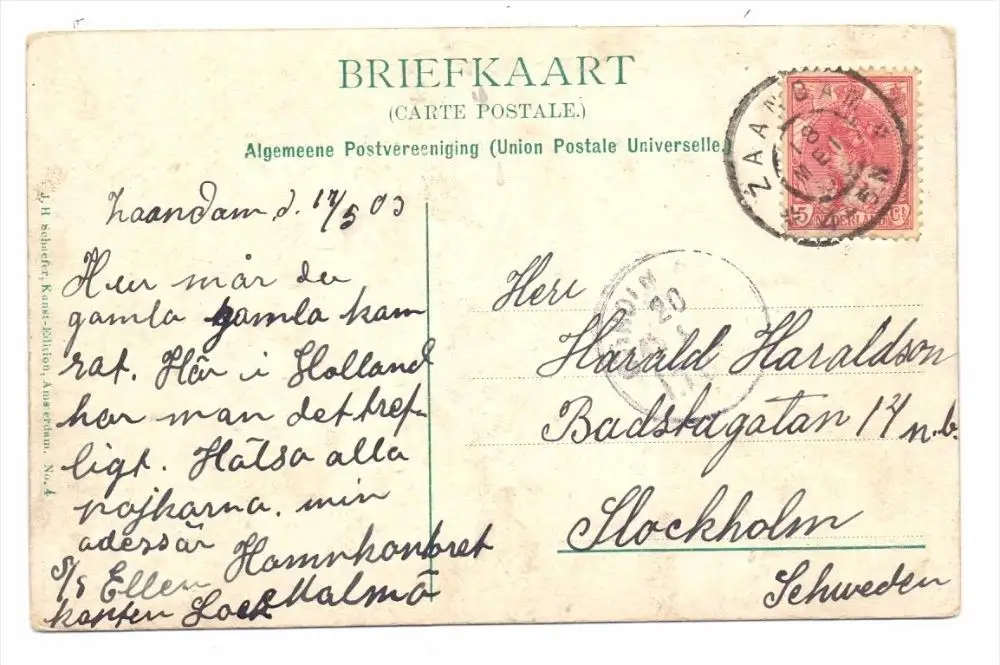 BRIEFKAART
(CARTE POSTALE.)
Algemeene Postvereeniging (Union Postale Universelle.)
ZAANDAM
18
MEI
5 Ct
NEDERLAND
J. H. Schaefer, Kunst-Edition, Amsterdam. No. 4
Zaandam d. 17/5 03
Hur mår du
gamla gamla kam
rat. Här i Holland
har man det tref-
ligt. Hälsa alla
pojkarna. min
adess är Hamnkontoret
S/S Ellen Malmö
kapten
20
Herr
Harald Haraldson
Badstugatan 14 n.b.
Stockholm
Schweden